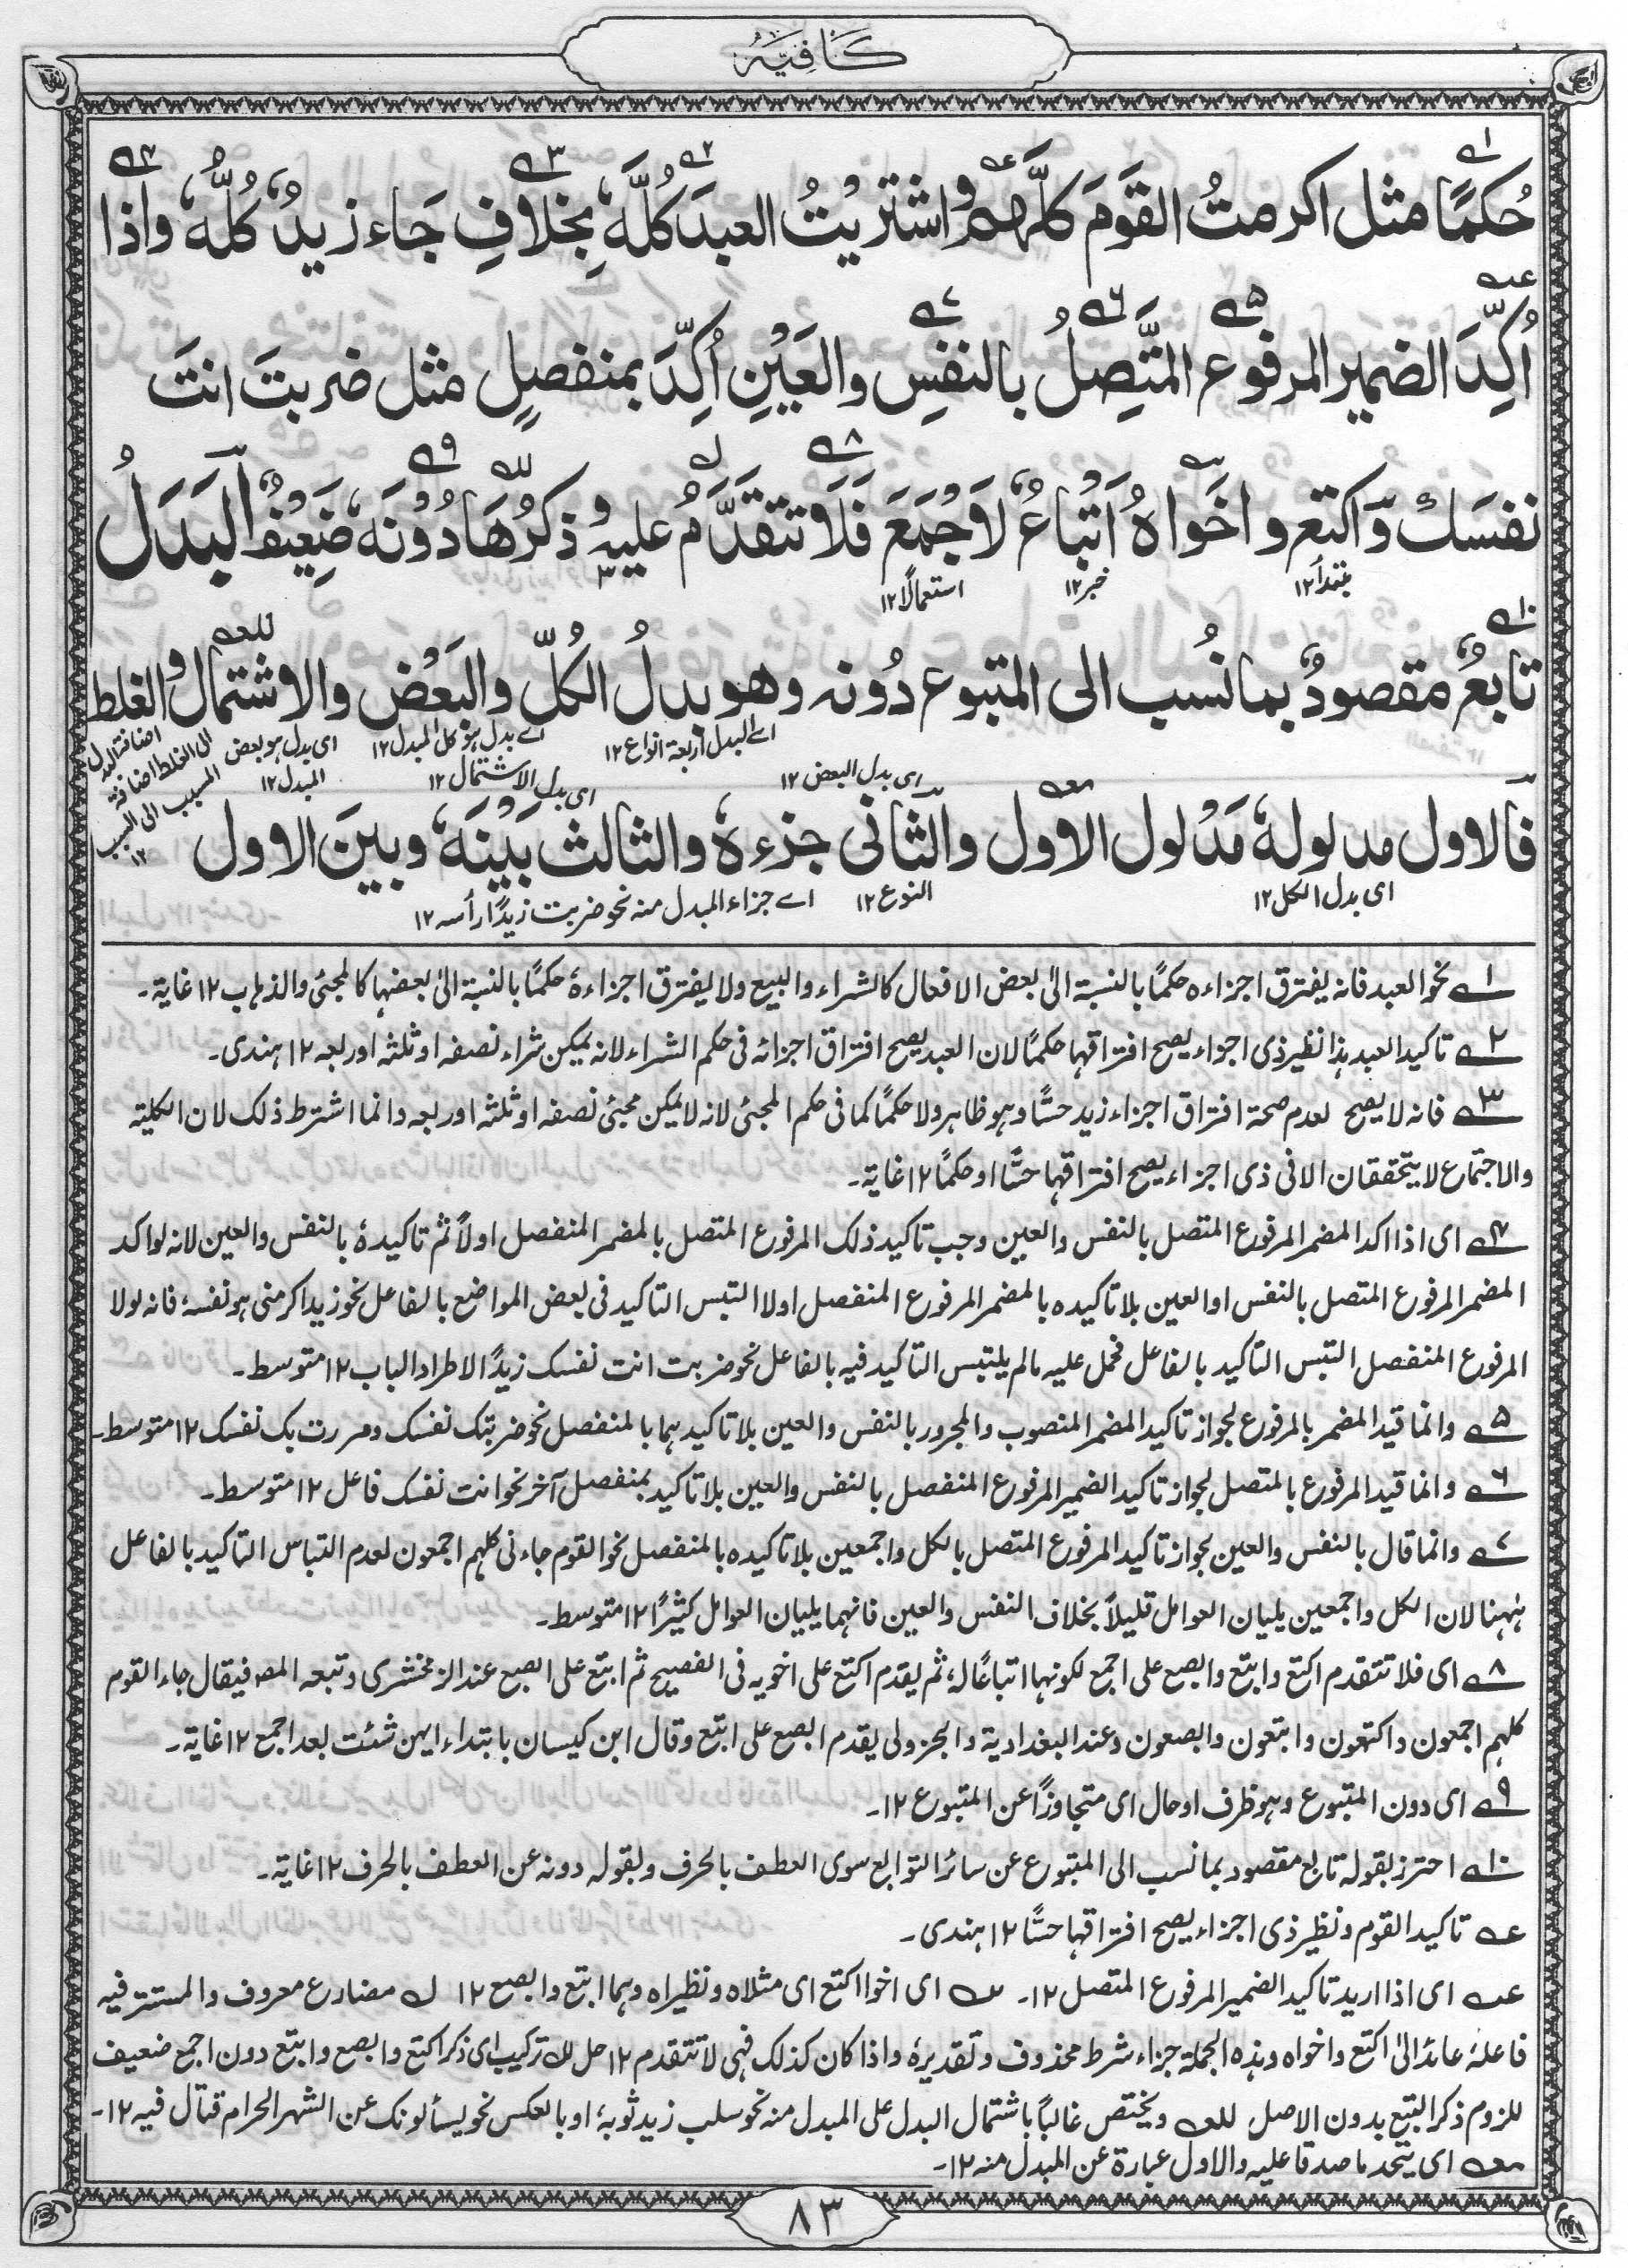 كَافِيَهْ
حُكمًا مثل اكرمتُ القَومَ كلَّهم و اشتريتُ العبدَ كُلَّهٗ بِخلافِ جَاء زيدٌ كُلُّهٗ واذا
اُكِّدَ الضمير المرفوع المتَّصِلُ بالنفسِ والعَيْنِ اُكِّدَ بمنفصلٍ مثل ضربتَ انتَ
نفسَكَ وَاكتع و اخَواهُ اَتْباعٌ لاَجْمَعَ فَلَا تتقدَّمُ عليه و ذكرُهَا دُوْنَهٗ ضَعِيْفٌ اَلبَدَلُ
مبتدأ ۱۲ خبر ۱۲ استعمالًا ۱۲
تابعٌ مقصودٌ بما نُسب الى المتبوع دُونه وهو بدلُ الكُلِّ والبَعْض والاشتمال و الغلط
اے البدل اربعة انواع ۱۲ اے بدل هو كل المبدل ۱۲ اى بدل هو بعض المبدل ۱۲ اضافة البدل الى الغلط اضافة المسبب الى السبب ۱۲
اى بدل البعض ۱۲ اى بدل الاشتمال ۱۲
فَالاول مدلولهٗ مَدْلول الاوّل والثّانى جزءهٗ والثالث بَيْنَهٗ وبينَ الاول
اى بدل الكل ۱۲ النوع ۱۲ اے جزاء المبدل منه نحو ضربت زيدًا رأسه ۱۲
۱؎ نحو العبد فانه يفترق اجزاءه حكمًا بالنسبة الىٰ بعض الافعال كالشراء والبيع ولا يفترق اجزاءهٗ حكمًا بالنسبة الىٰ بعضها كالمجئى والذهاب ۱۲ غاية۔
۲؎ تاكيد العبد هذا نظير ذى اجزاء يصح افتراقها حكمًا لان العبد يصح افتراق اجزائه فى حكم الشراء لانه يمكن شراء نصفه او ثلثه او ربعه ۱۲ هندى۔
۳؎ فانه لا يصح لعدم صحة افتراق اجزاء زيد حسًّا وهو ظاهر ولا حكمًا كما فى حكم المجئى لانه لا يمكن مجئى نصفه او ثلثه او ربعه وانما اشترط ذلك لان الكلية
والاجتماع لا يتحققان الا فى ذى اجزاء يصح افتراقها حسًّا او حكمًا ۱۲ غاية۔
۴؎ اى اذا اكد المضمر المرفوع المتصل بالنفس والعين وجب تاكيد ذلك المرفوع المتصل بالمضمر المنفصل اولاً ثم تاكيدهٗ بالنفس والعين لانه لو اكد
المضمر المرفوع المتصل بالنفس او العين بلا تاكيده بالمضمر المرفوع المنفصل اولا التبس التاكيد فى بعض المواضع بالفاعل نحو زيد اكرمنى هو نفسهٗ فانه لولا
المرفوع المنفصل التبس التاكيد بالفاعل فحمل عليه مالم يلتبس التاكيد فيه بالفاعل نحو ضربت انت نفسك زيدًا لاطراد الباب ۱۲ متوسط۔
۵؎ وانما قيد المضمر بالمرفوع لجواز تاكيد المضمر المنصوب والمجرور بالنفس والعين بلا تاكيدهما بالمنفصل نحو ضربتك نفسك ومررت بك نفسك ۱۲ متوسط۔
۶؎ وانما قيد المرفوع بالمتصل لجواز تاكيد الضمير المرفوع المنفصل بالنفس والعين بلا تاكيد بمنفصل آخر نحو انت نفسك فاعل ۱۲ متوسط۔
۷؎ وانما قال بالنفس والعين لجواز تاكيد المرفوع المتصل بالكل واجمعين بلا تاكيده بالمنفصل نحو القوم جاءنى كلهم اجمعون لعدم التباس التاكيد بالفاعل
ههنا لان الكل واجمعين يليان العوامل قليلاً بخلاف النفس والعين فانهما يليان العوامل كثيرًا ۱۲ متوسط۔
۸؎ اى فلا تتقدم اكتع وابتع وابصع على اجمع لكونها اتباعًا لهٗ ثم يقدم اكتع على اخويه فى الفصيح ثم ابتع على ابصع عند الزمخشرى وتبعه المصـ فيقال جاء القوم
كلهم اجمعون واكتعون وابتعون وابصعون وعند البغدادية والجزولى يقدم ابصع على ابتع وقال ابن كيسان بابتداء ايهن شئت بعد اجمع ۱۲ غاية۔
۹؎ اى دون المتبوع وهو ظرف او حال اى متجاوزًا عن المتبوع ۱۲۔
۱۰؎ احترز بقوله تابع مقصود بما نسب الى المتبوع عن سائر التوابع سوى العطف بالحرف وبقوله دونه عن العطف بالحرف ۱۲ غاية۔
عہ تاكيد القوم ونظير ذى اجزاء يصح افتراقها حسًّا ۱۲ هندى۔
عہ اى اذا اريد تاكيد الضمير المرفوع المتصل ۱۲۔ سہ اى اخوا اكتع اى مثلاه ونظيراه وهما ابتع وابصع ۱۲ لہ مضارع معروف والمستتر فيه
فاعلهٗ عائد الىٰ اكتع واخواه وهذه الجملة جزاء شرط محذوف وتقديرهٗ واذا كان كذلك فهى لا تتقدم ۱۲ حل للہ تركيب اى ذكر اكتع وابصع وابتع دون اجمع ضعيف
للزوم ذكر التبع بدون الاصل للعہ ويختص غالبًا باشتمال البدل على المبدل منه نحو سلب زيد ثوبهٗ او بالعكس نحو يسألونك عن الشهر الحرام قتال فيه ۱۲۔
معہ اى يتحد ما صدقا عليه والاول عبارة عن المبدل منه ۱۲۔
۸۳